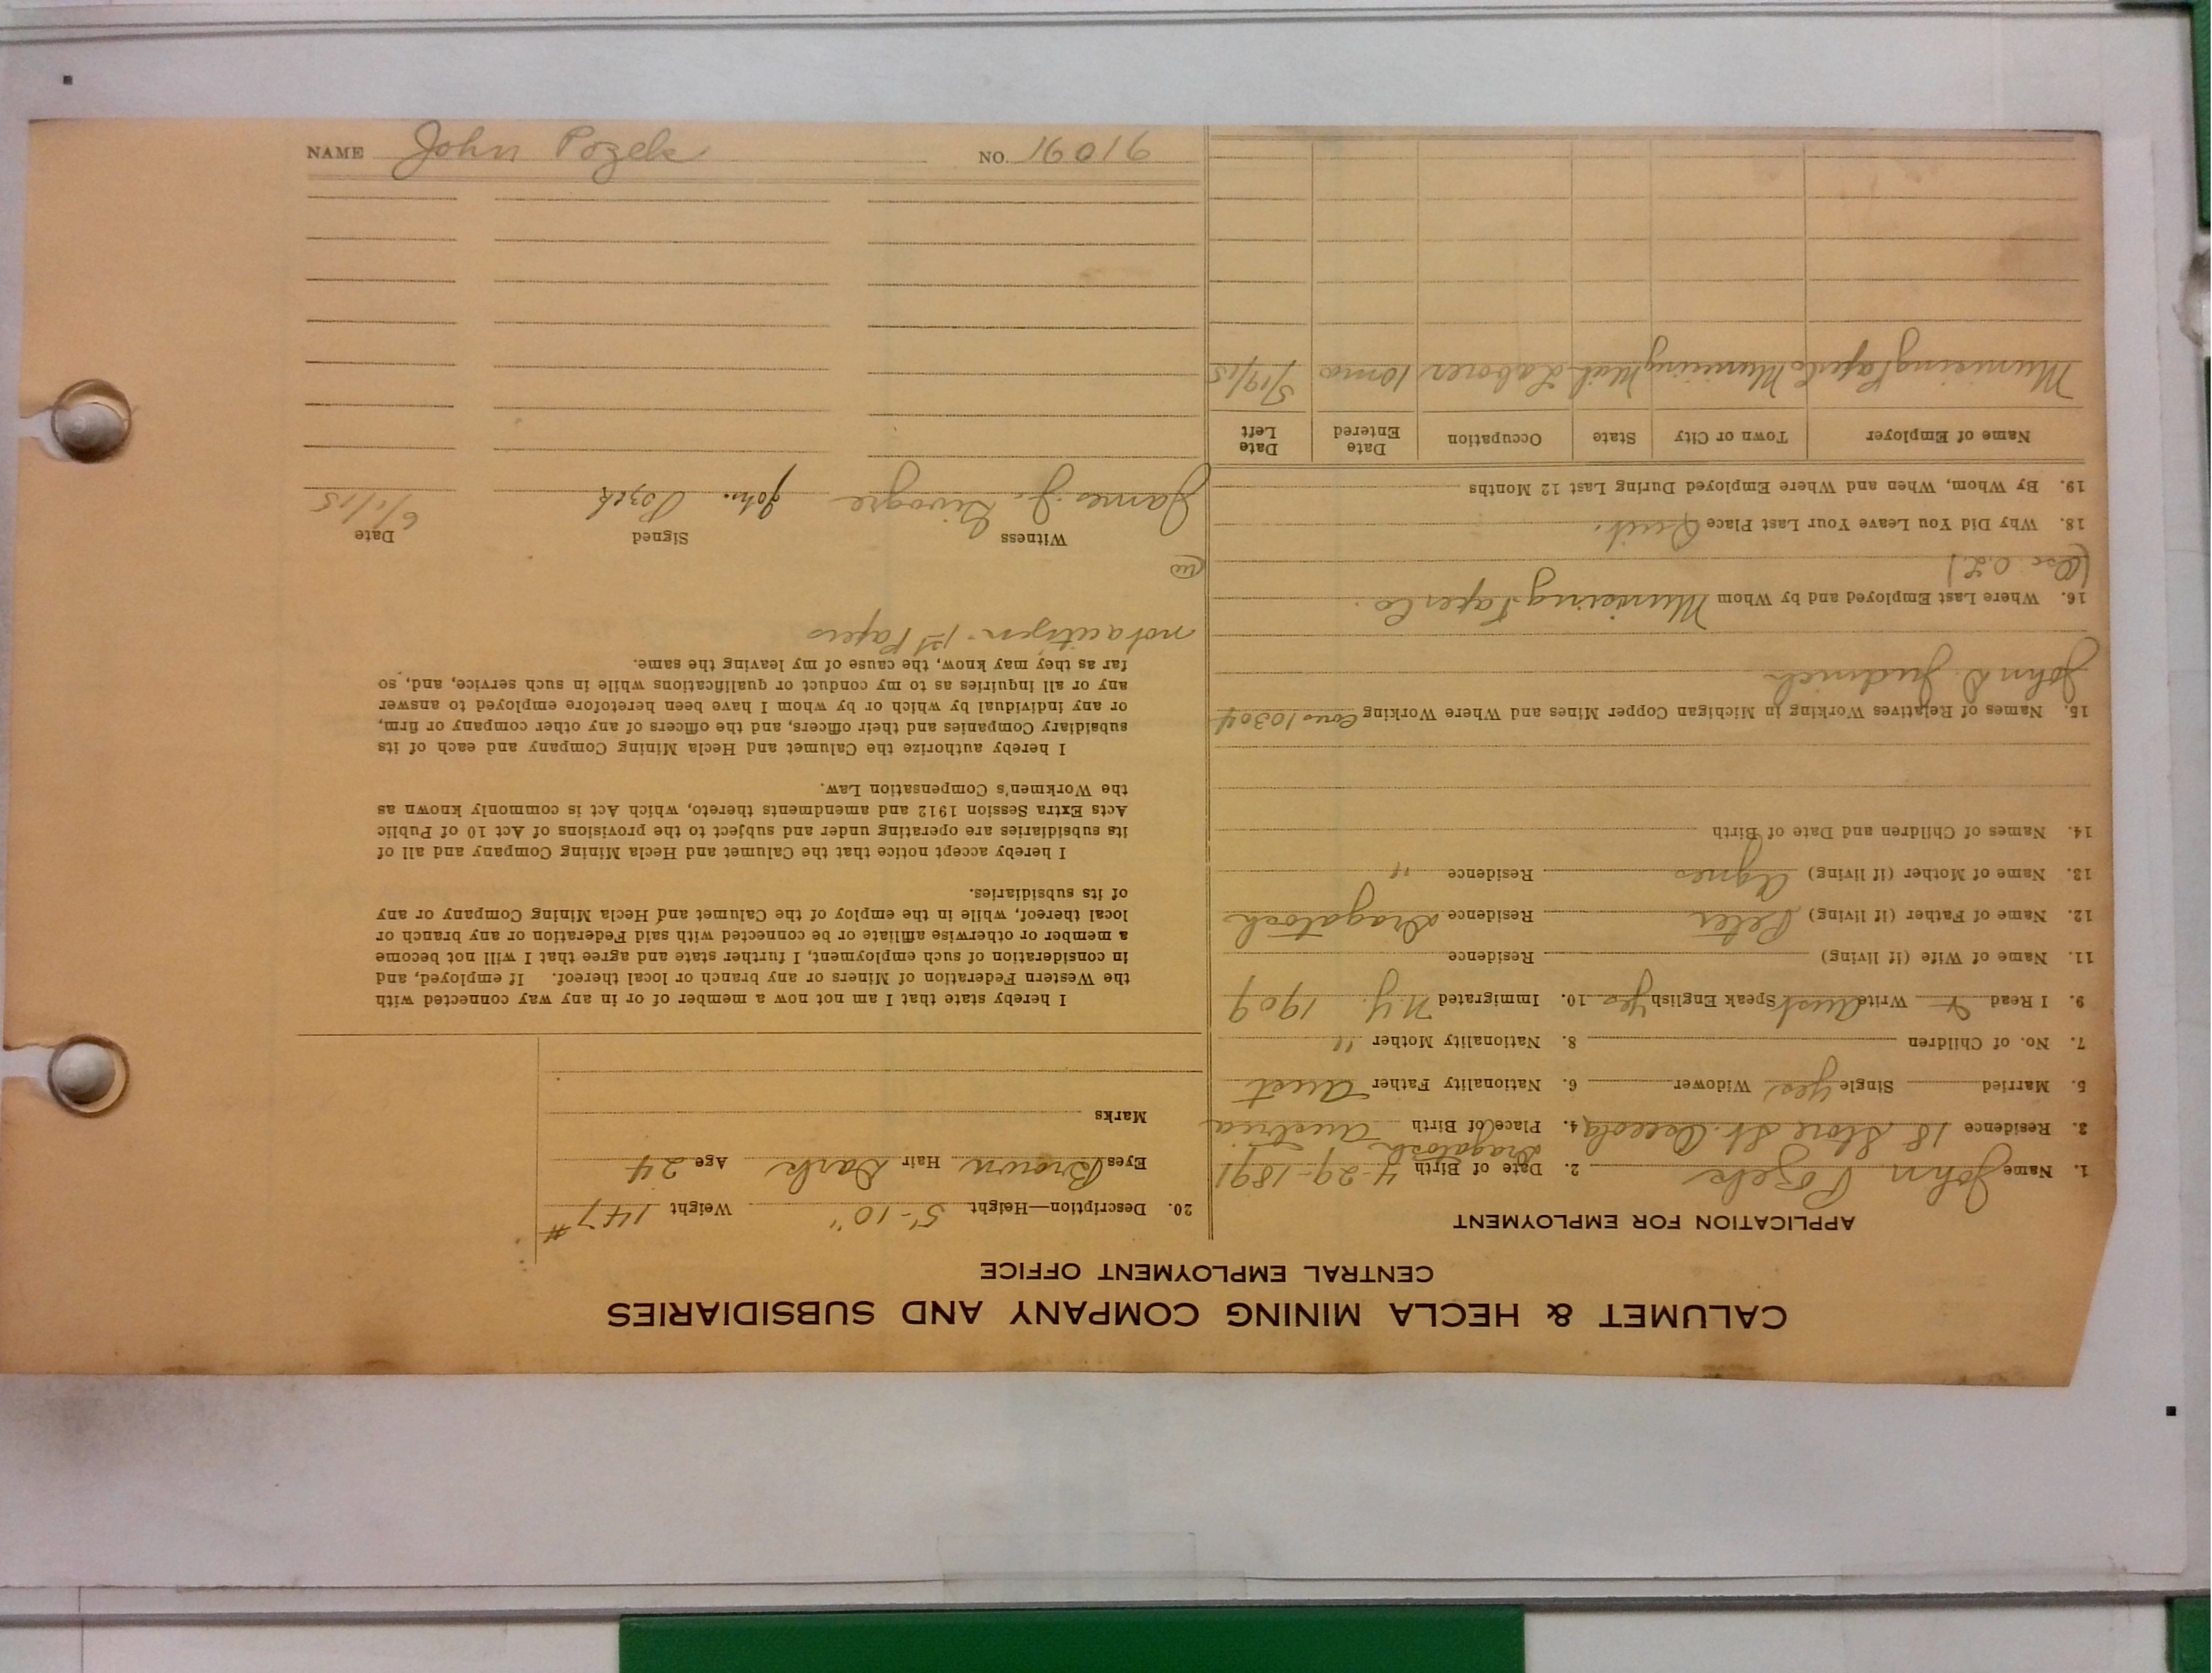 CALUMET & HECLA MINING COMPANY AND SUBSIDIARIES
CENTRAL EMPLOYMENT OFFICE
APPLICATION FOR EMPLOYMENT
1. Name John Pozek 2. Date of Birth 4-29-1891
Dragatosh
3. Residence 18 Stone St. Osceola 4. Place of Birth Austria
5. Married Single Yes Widower 6. Nationality Father Aust
7. No. of Children 8. Nationality Mother "
9. I Read & Write Aust Speak English Yes 10. Immigrated N.Y. 1909
11. Name of Wife (if living) Residence
12. Name of Father (if living) Peter Residence Dragatosh
13. Name of Mother (if living) Agnes Residence "
14. Names of Children and Date of Birth
15. Names of Relatives Working in Michigan Copper Mines and Where Working Cous 10304
John D.
16. Where Last Employed and by Whom Munising Paper Co.
(Osc. O.L.)
18. Why Did You Leave Your Last Place Quit.
19. By Whom, When and Where Employed During Last 12 Months
Name of Employer Town or City State Occupation Date Entered Date Left
Munising Paper Co Munising Mich Laborer 10 mos 5/19/15
20. Description—Height 5'-10" Weight 147#
Eyes Brown Hair Dark Age 24
Marks
I hereby state that I am not now a member of or in any way connected with
the Western Federation of Miners or any branch or local thereof. If employed, and
in consideration of such employment, I further state and agree that I will not become
a member or otherwise affiliate or be connected with said Federation or any branch or
local thereof, while in the employ of the Calumet and Hecla Mining Company or any
of its subsidiaries.
I hereby accept notice that the Calumet and Hecla Mining Company and all of
its subsidiaries are operating under and subject to the provisions of Act 10 of Public
Acts Extra Session 1912 and amendments thereto, which Act is commonly known as
the Workmen's Compensation Law.
I hereby authorize the Calumet and Hecla Mining Company and each of its
subsidiary Companies and their officers, and the officers of any other company or firm,
or any individual by which or by whom I have been heretofore employed to answer
any or all inquiries as to my conduct or qualifications while in such service, and, so
far as they may know, the cause of my leaving the same.
not a citizen. 1st Papers
Witness Signed Date
James J. John. Pozek 6/1/15
NAME John Pozek NO. 16016